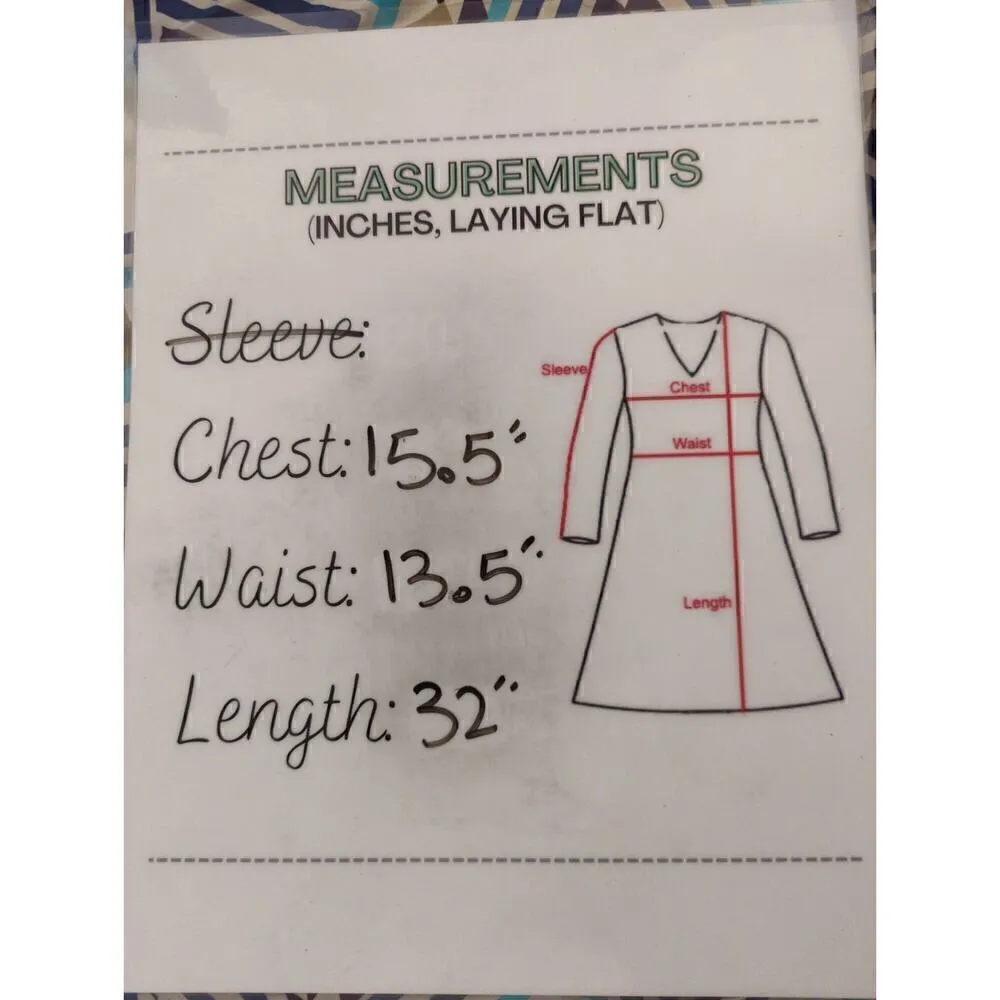 MEASUREMENTS
(INCHES, LAYING FLAT)
Sleeve:
Chest: 15.5"
Waist: 13.5"
Length: 32"
Sleeve
Chest
Waist
Length